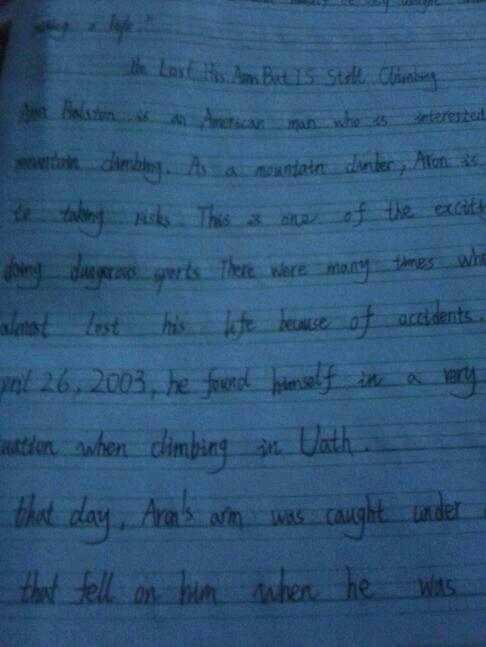 a life."
He Lost His Arm But IS Still Climbing
Aron Ralston is an American man who is interested
mountain climbing. As a mountain climber, Aron is
to taking risks. This is one of the exciti
doing dangerous sports There were many times whe
almost lost his life because of accidents.
pril 26, 2003, he found himself in a very
uation when climbing in Uath.
that day, Aron's arm was caught under
that fell on him when he was